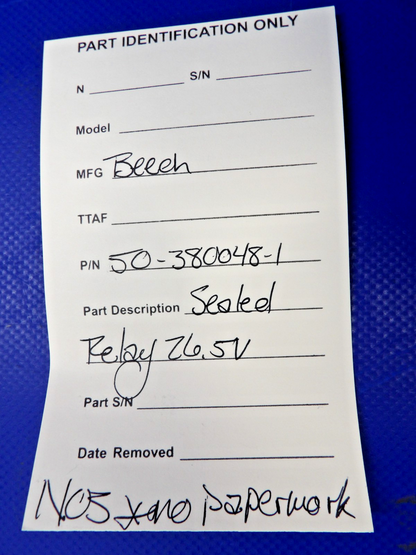 PART IDENTIFICATION ONLY
N S/N
Model
MFG Beech
TTAF
P/N 50-380048-1
Part Description Sealed
Relay 26.5V
Part S/N
Date Removed
NOS no paperwork